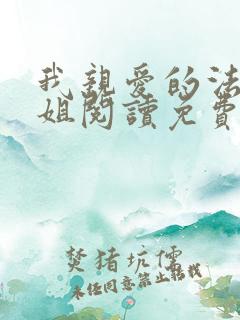 我親愛的法
姐閱讀免費
焚猪坑儒
未经同意禁止轉載